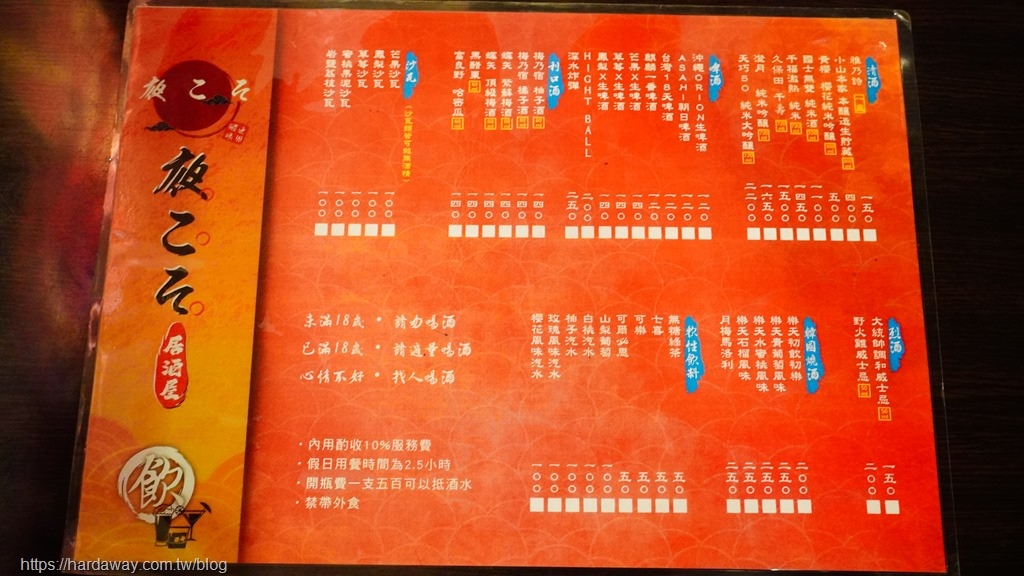 夜こそ
夜こそ
居酒屋
飲
清酒
雅乃詩 一五〇
小山本家 本釀造生貯藏 四〇〇
黄櫻 櫻花純米吟釀 五〇〇
國士無雙 純米酒 一一〇〇
千福道熱 純米 一四五〇
久保田 千壽 一五〇〇
澄月 純米吟釀 一六五〇
天巧50 純米大吟釀 二二〇〇
啤酒
沖繩ORION生啤酒 一二〇
ASAHI朝日啤酒 一二〇
台灣18天啤酒 一二〇
麒麟一番啤酒 一二〇
芒果X生啤酒 一四〇
草莓X生啤酒 一四〇
鳳梨X生啤酒 一四〇
HIGHT BALL 二〇〇
深水炸彈 二五〇
利口酒
梅乃宿 柚子酒 一四〇
梅乃宿 橘子酒 一四〇
蝶矢 紫蘇梅酒 一四〇
蝶矢 頂級梅酒 一四〇
黑醉棗 一四〇
富良野 哈密瓜 一四〇
沙瓦
芒果沙瓦 一〇〇
鳳梨沙瓦 一〇〇
草莓沙瓦 一〇〇
蜜桃果泥沙瓦 一〇〇
岩鹽荔枝沙瓦 一〇〇
烈酒
大績帥調和威士忌 一五〇
野火雞威士忌 二〇〇
韓國燒酒
樂天初飲初樂 二〇〇
樂天青葡萄風味 二五〇
樂天水蜜桃風味 二五〇
樂天石榴風味 二五〇
月梅馬洛利 二五〇
軟性飲料
無糖綠茶 五〇
七喜 五〇
可樂 五〇
可爾必思 五〇
山梨葡萄 一〇〇
白桃汽水 一〇〇
柚子汽水 一〇〇
玫瑰風味汽水 一〇〇
櫻花風味汽水 一〇〇
未滿18歲 • 請勿喝酒
已滿18歲 • 請適量喝酒
心情不好 • 找人喝酒
・內用酌收10%服務費
・假日用餐時間為2.5小時
・開瓶費一支五百可以抵酒水
・禁帶外食
https://hardaway.com.tw/blog